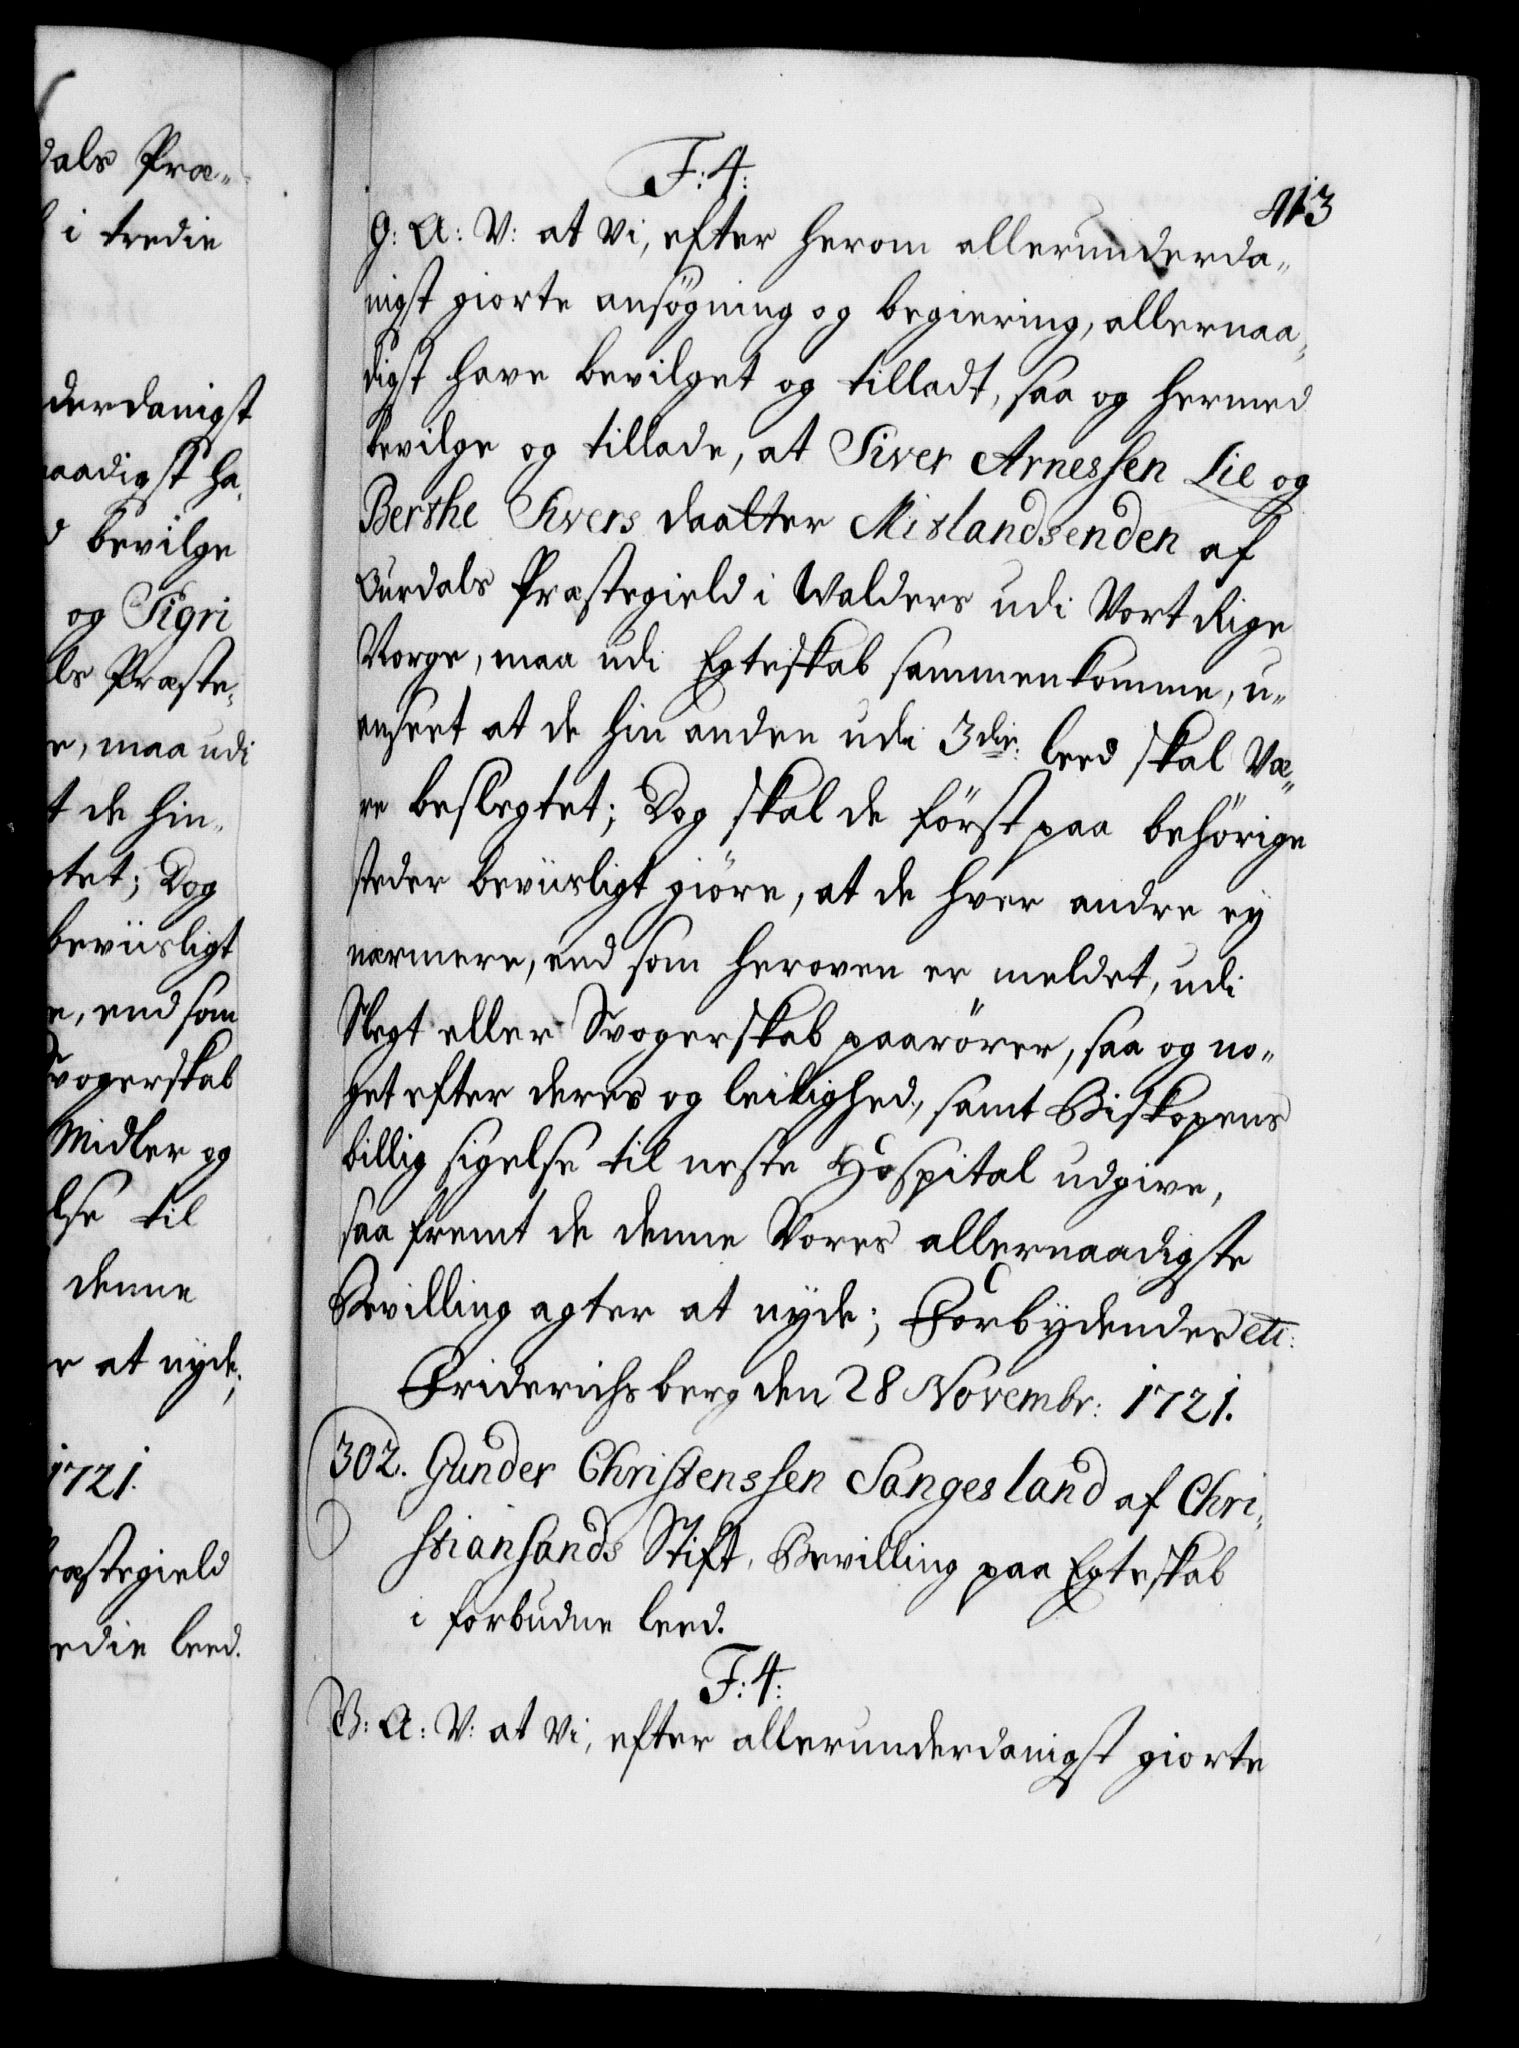 dals Præ-
i tredie
derdanigst
naadigst ha-
d bevilge
og Sigri
ls Præste-
e, maa udi
t de hin-
tet; Dog
beviisligt
e, end som
Svogerskab
Midler og
else til
denne
r at nyde;
1721.
ræstegield
redie leed.
413
F: 4:
G: A: V: at Vi, efter herom allerunderda-
nigst giorte ansögning og begiering, allernaa-
digst have bevilget og tilladt, saa og hermed
bevilge og tillade, at Siver Arnessen Lie og
Berthe Sivers daatter Mislandsenden af
Aurdals Præstegield i Walders udi Vort Rige
Norge, maa udi Egteskab sammenkomme, u-
anseet at de hin anden udi 3die: leed skal Væ-
re beslegtet; Dog skal de först paa behörige
steder beviisligt giöre, at de hver andre ey
nærmere, end som heroven er meldet, udi
Slegt eller Svogerskab paarörer, saa og no-
get efter deres og leilighed, samt Biskopens
billig sigelse til neste Hospital udgive,
saa fremt de denne Vores allernaadigste
Bevilling agter at nyde; Forbydendes etc:
Friderichsberg den 28 Novembr: 1721.
302. Gunder Christenssen Sangesland af Chri-
stiansands Stift, Bevilling paa Egteskab
i forbudne leed.
F: 4:
G: A: V: at Vi, efter allerunderdanigst giorte